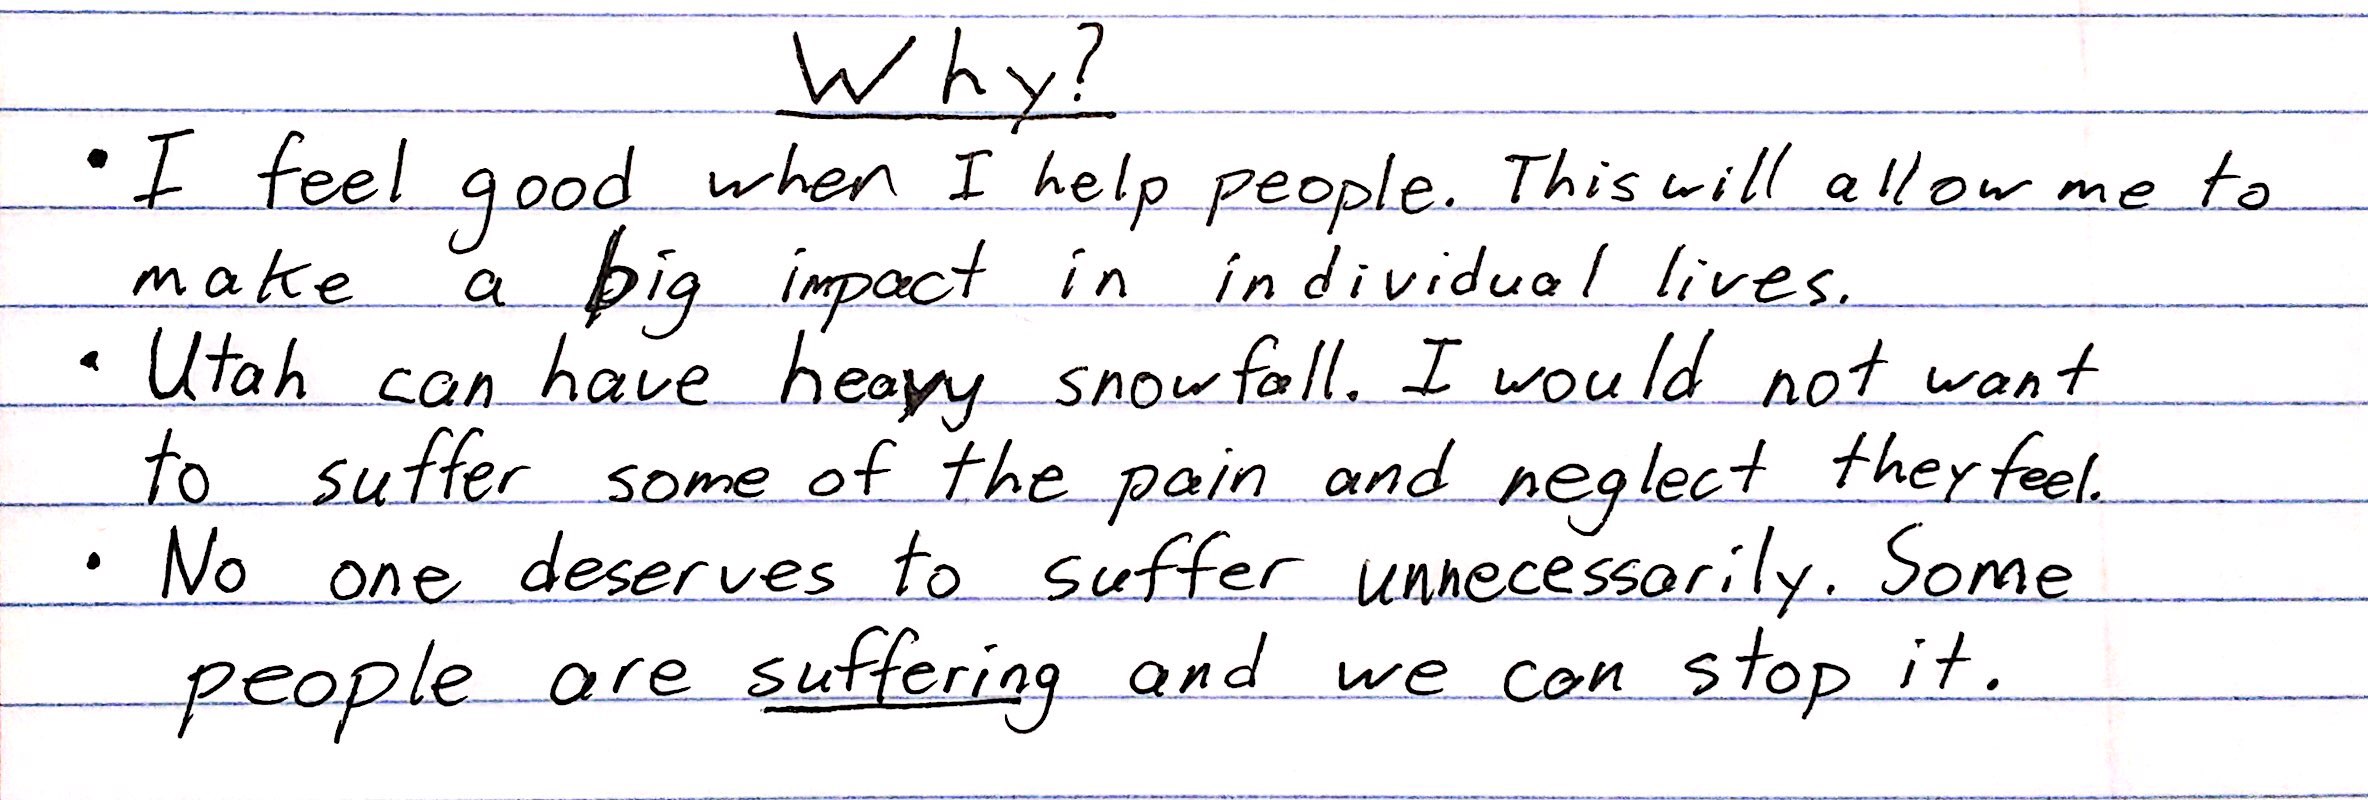 Why?
• I feel good when I help people. This will allow me to
make a big impact in individual lives.
• Utah can have heavy snowfall. I would not want
to suffer some of the pain and neglect they feel.
• No one deserves to suffer unnecessarily. Some
people are suffering and we can stop it.